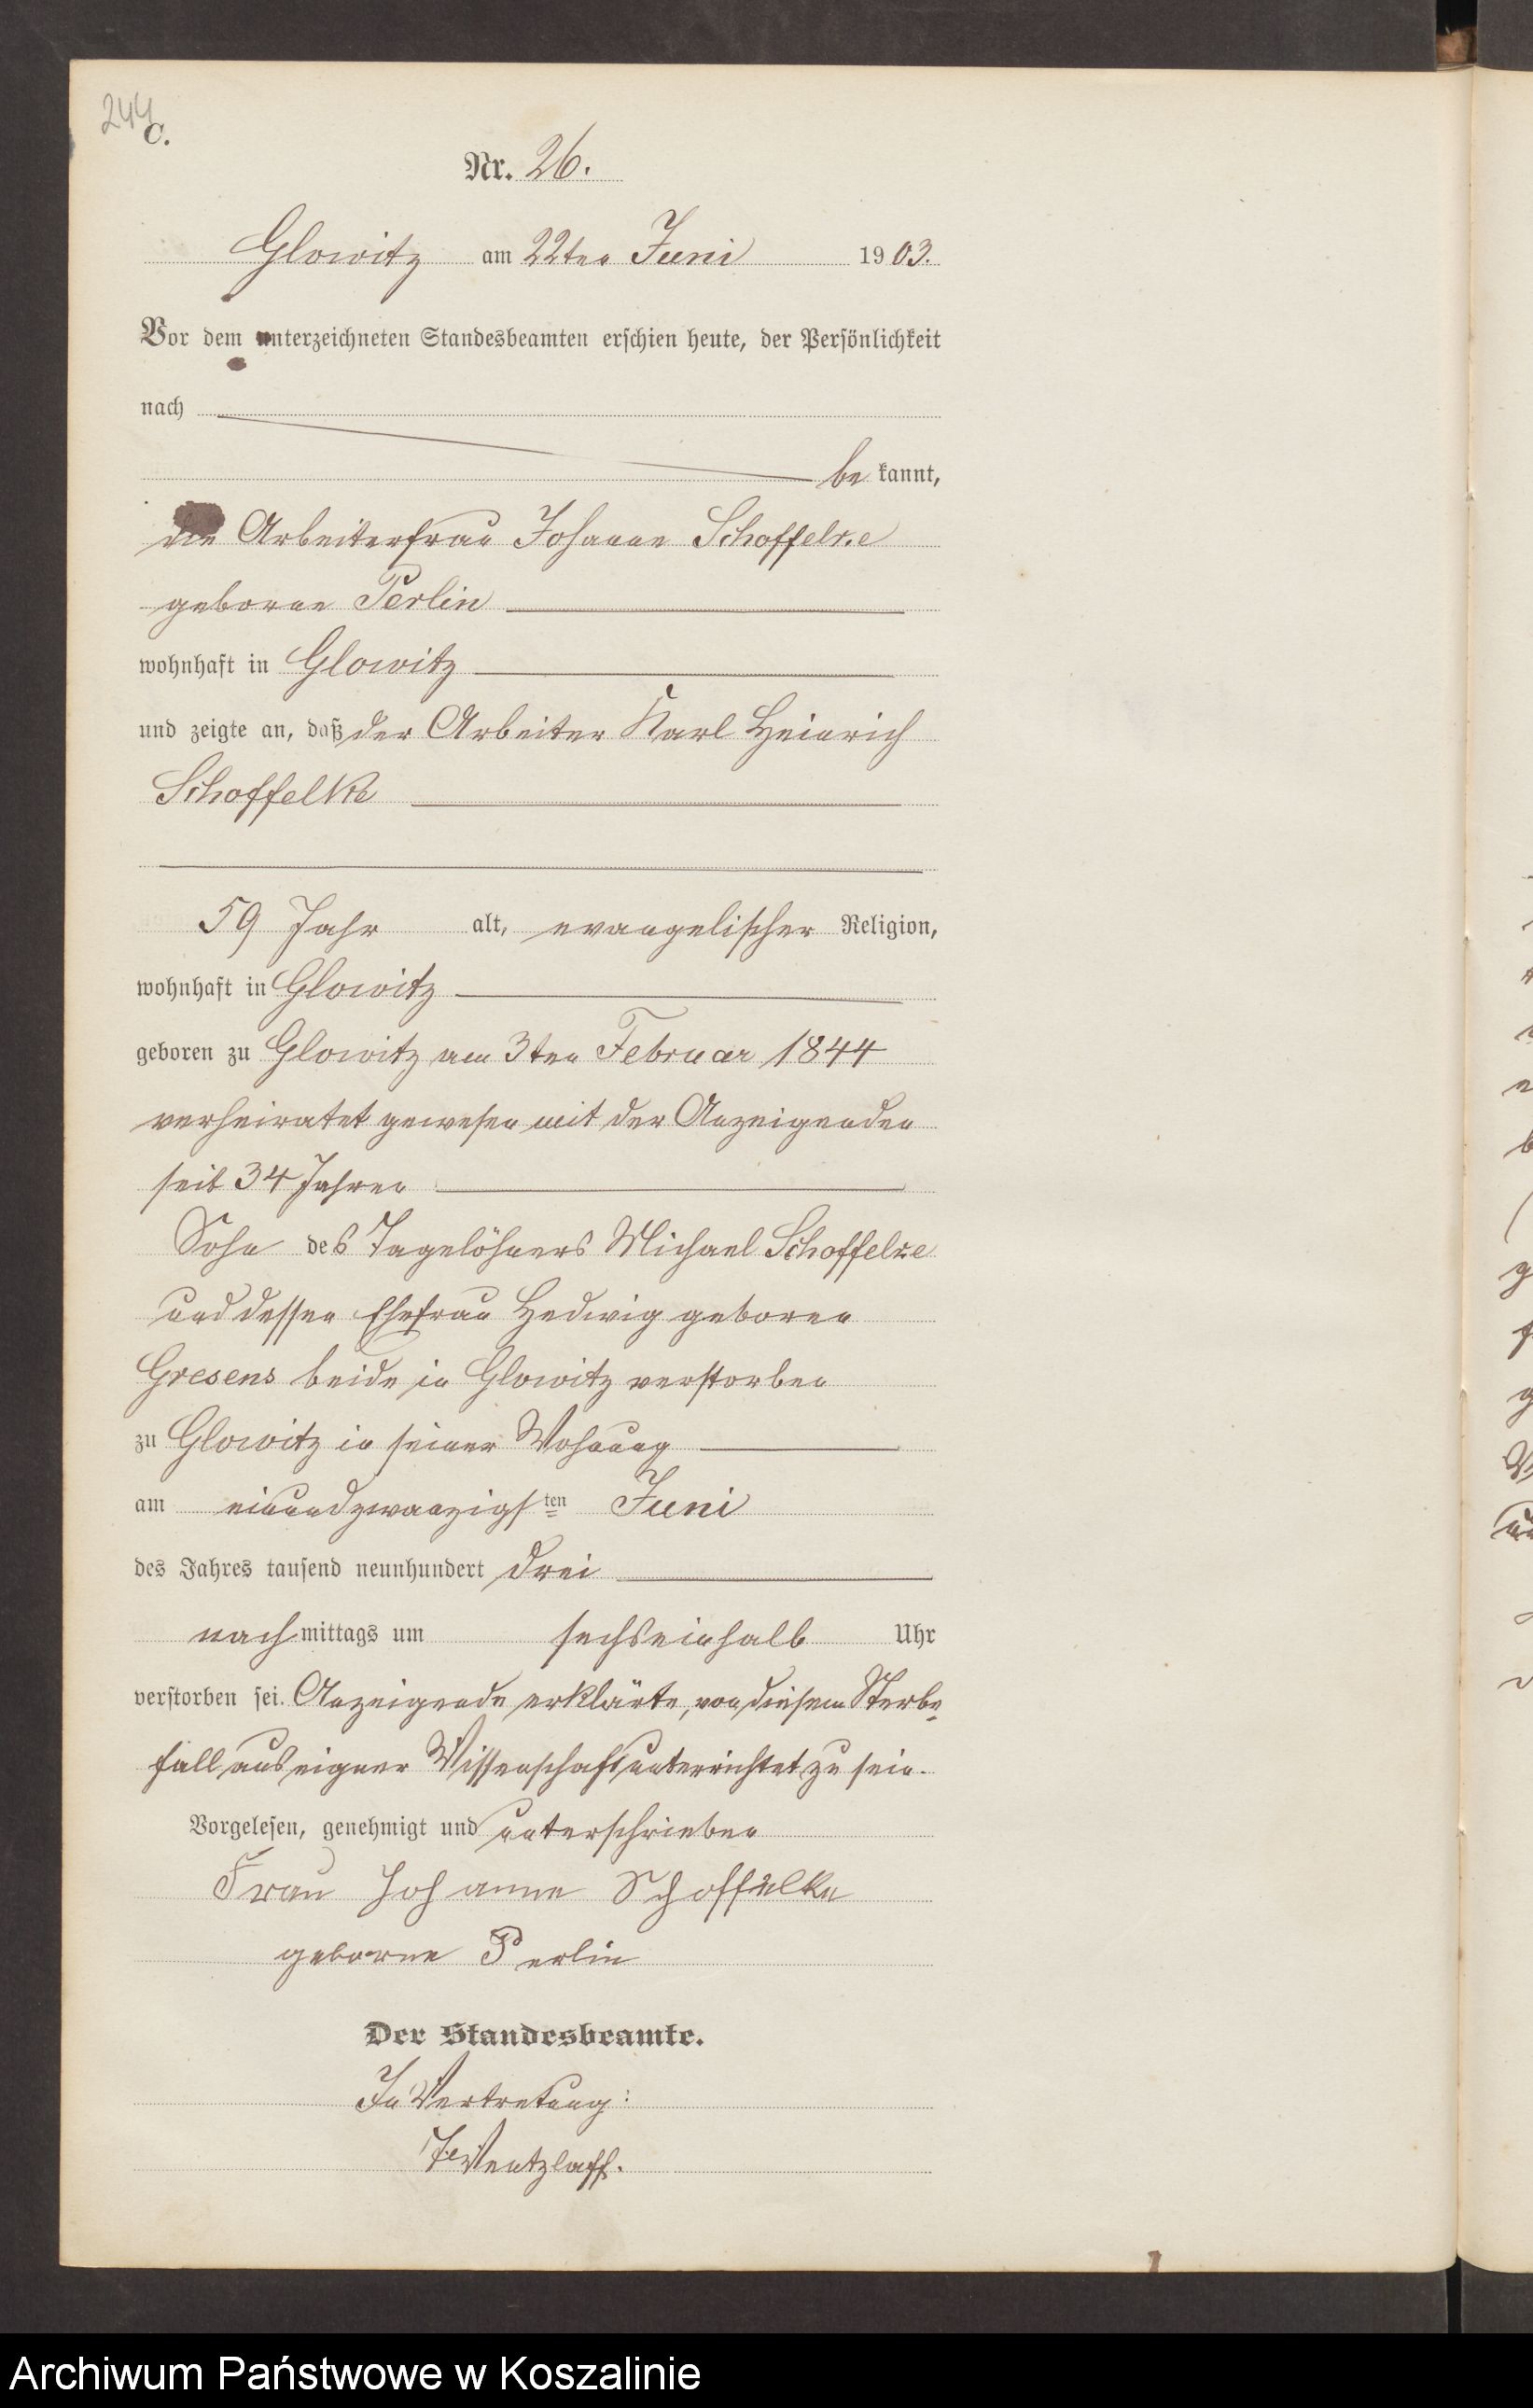 244
C.
Nr. 26.
Glowitz am 22ten Juni 1903.
Vor dem unterzeichneten Standesbeamten erschien heute, der Persönlichkeit
nach
bekannt,
die Arbeiterfrau Johanne Schoffelke
geborne Perlin
wohnhaft in Glowitz
und zeigte an, daß der Arbeiter Karl Heinrich
Schoffelke
59 Jahr alt, evangelischer Religion,
wohnhaft in Glowitz
geboren zu Glowitz am 3ten Februar 1844
verheiratet gewesen mit der Anzeigenden
seit 34 Jahren
Sohn des Tagelöhners Michael Schoffelke
und dessen Ehefrau Hedwig geboren
Gresens beide in Glowitz verstorben
zu Glowitz in seiner Wohnung
am einundzwanzigsten Juni
des Jahres tausend neunhundert drei
nachmittags um sechseinhalb Uhr
verstorben sei. Anzeigende erklärte, von diesem Sterbe-
fall aus eigner Wissenschaft unterrichtet zu sein.
Vorgelesen, genehmigt und unterschrieben
Frau Johanne Schoffelke
geborne Perlin
Der Standesbeamte.
In Vertretung:
Wentzlaff.
Archiwum Państwowe w Koszalinie